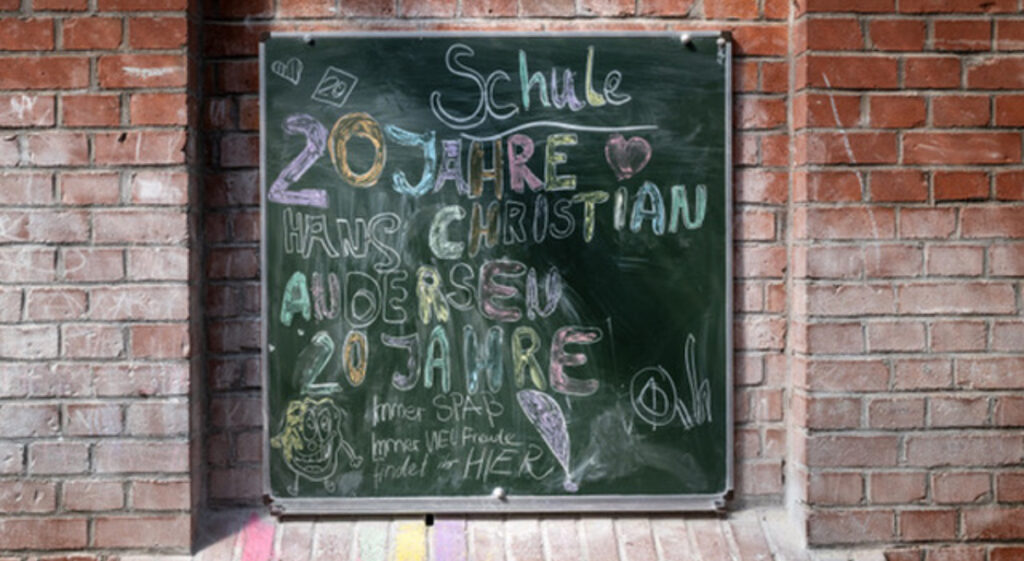 Schule
20
20 JAHRE
HANS CHRISTIAN
ANDERSEN
20 JAHRE
Immer SPAß
Immer NEU Freude
findet ihr HIER